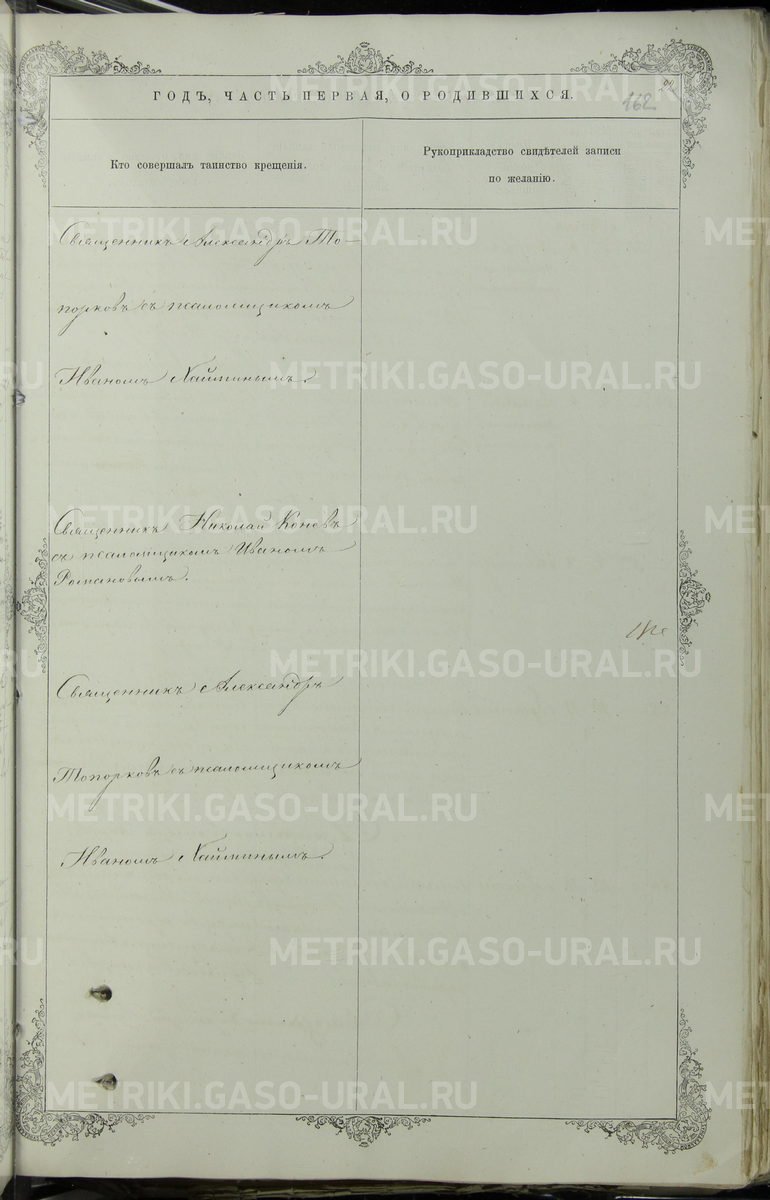 ГОДЪ, ЧАСТЬ ПЕРВАЯ, О РОДИВШИХСЯ.
162
Кто совершалъ таинство крещенія.
Рукоприкладство свидѣтелей записи
по желанію.
Священникъ Александръ То-
порковъ съ псаломщикомъ
Иваномъ
Священникъ Николай Коневъ
съ псаломщикомъ Иваномъ
Романовымъ.
Священникъ Александръ
Топорковъ съ псаломщикомъ
Иваномъ
METRIKI.GASO-URAL.RU